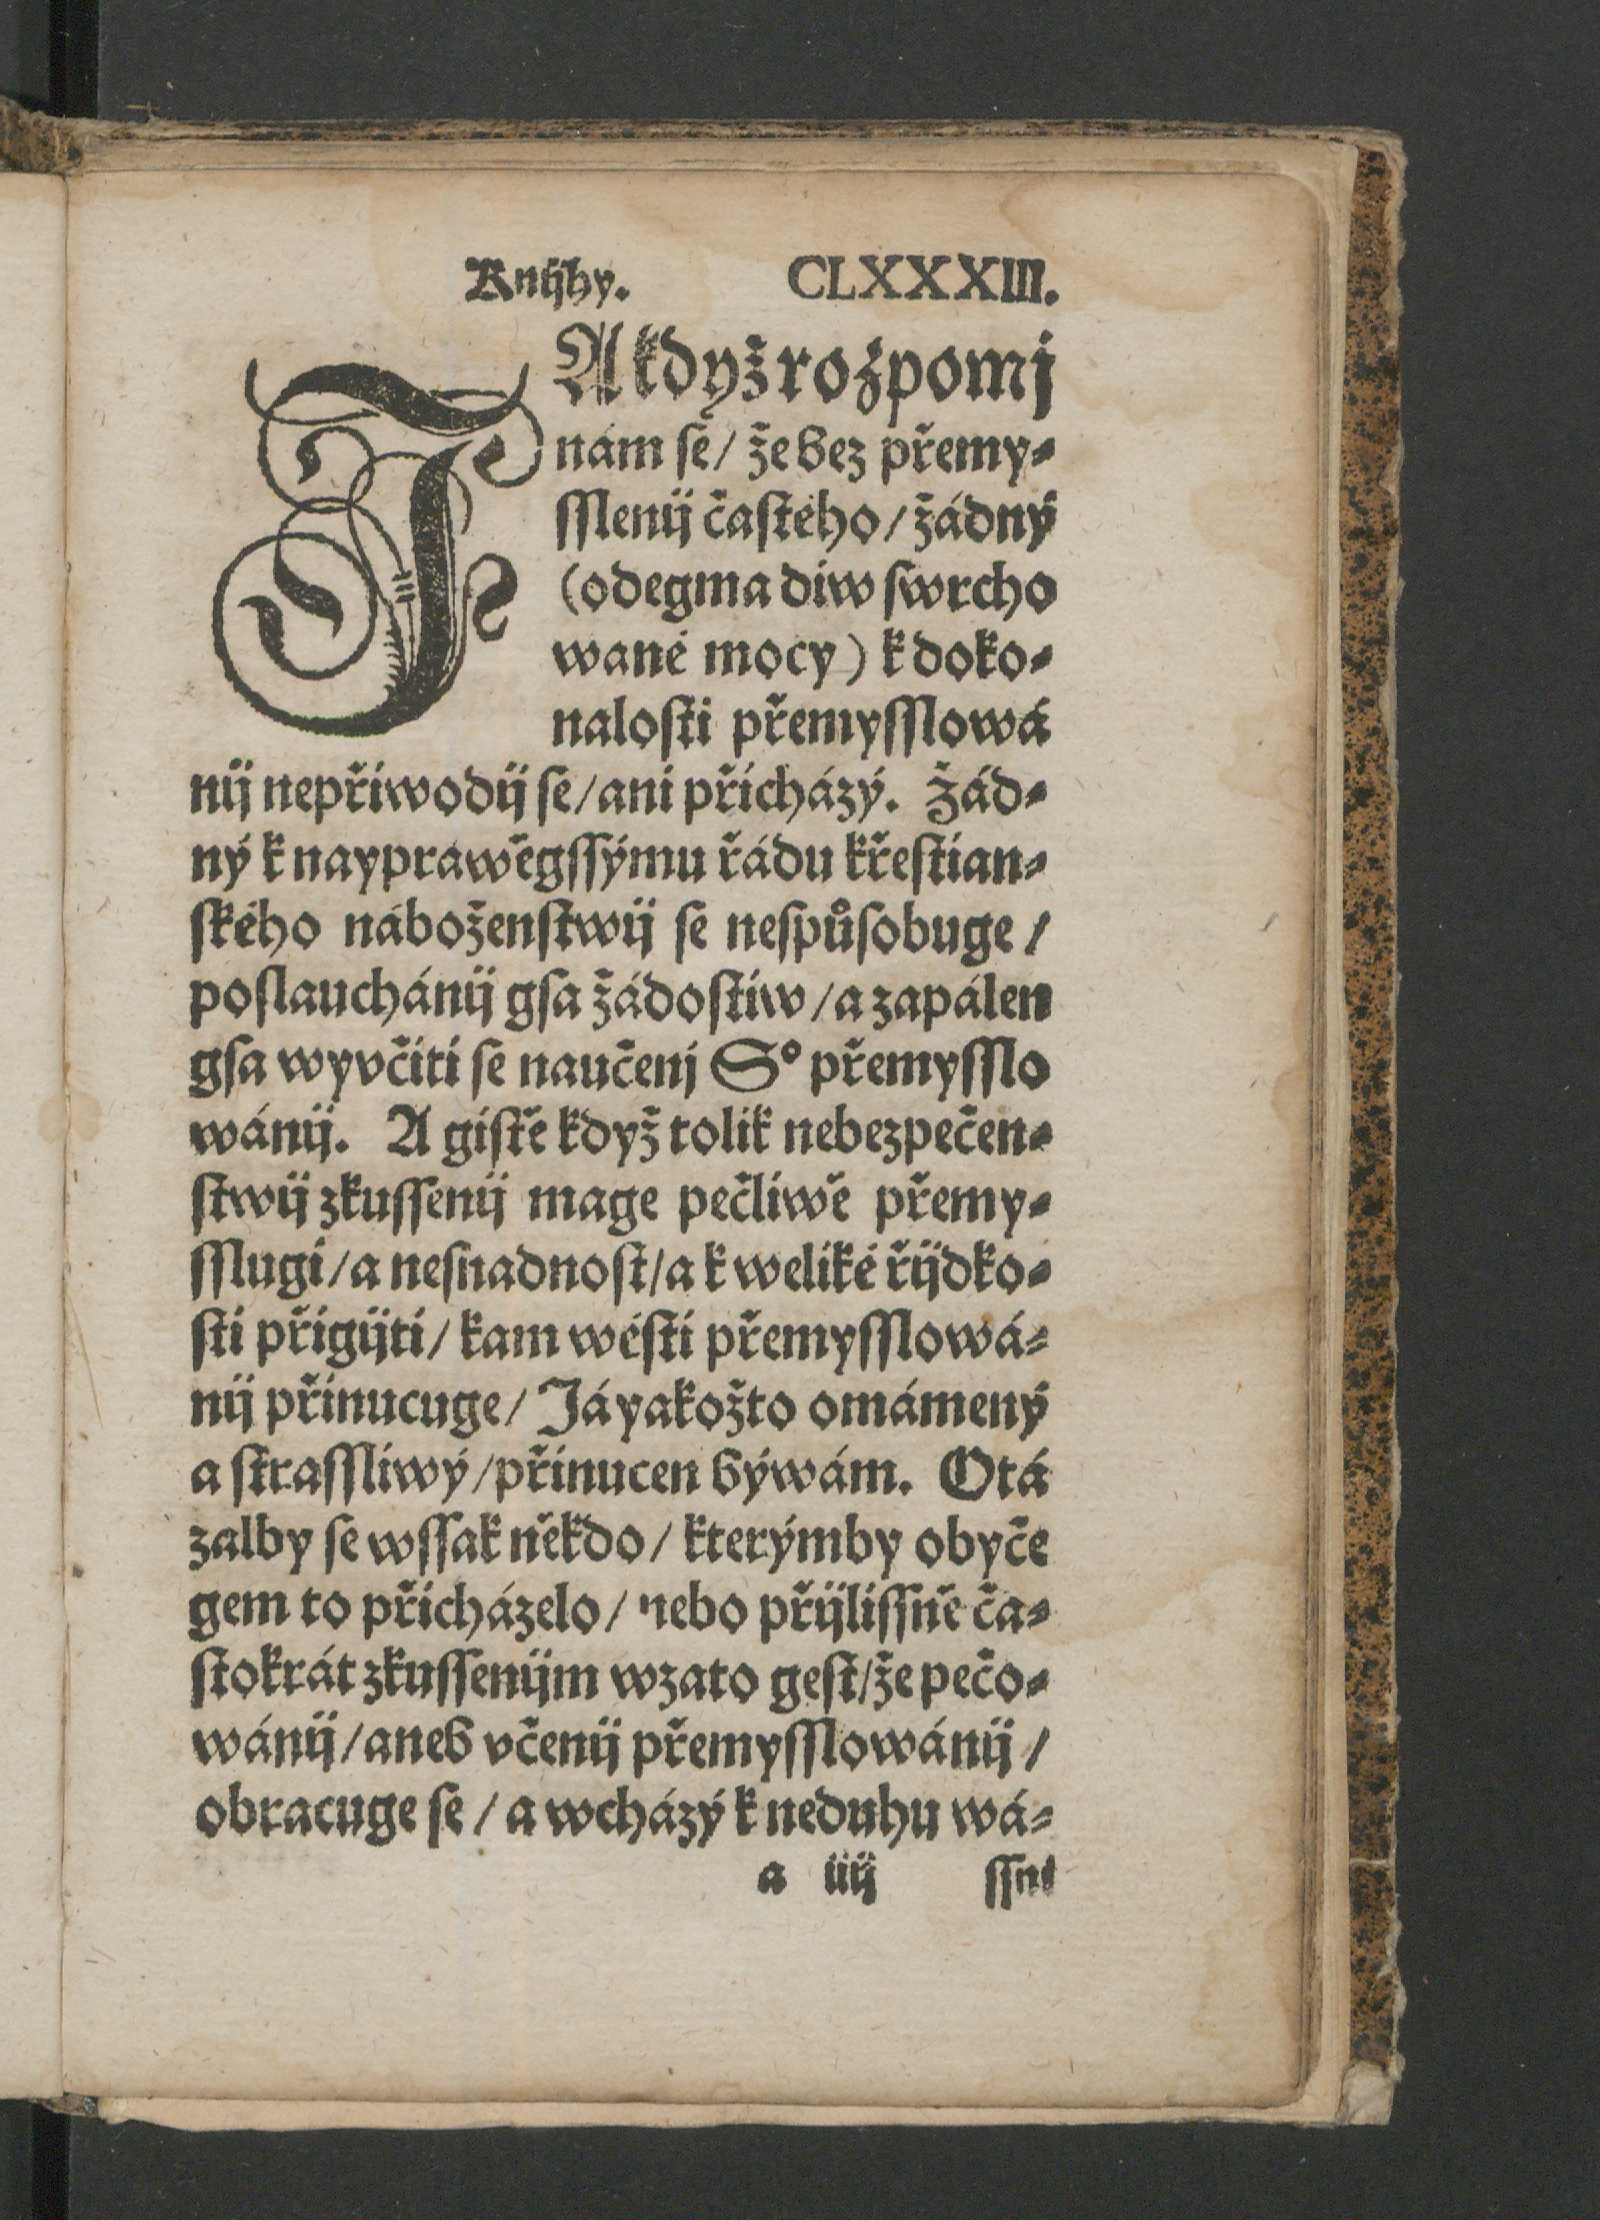 Knijhy. CLXXXIII.
JA když rozpomj
nám se/ že bez přemy⸗
ſſlenij častého/ žádný
(odegma diw ſwrcho
wané mocy) k doko⸗
naloſti přemyſſlowá
nij nepřiwodij ſe/ ani přicházý. Žád⸗
ný k nayprawěgſſýmu řádu křeſtian⸗
ſkého náboženſtwij ſe neſpůſobuge/
poſlauchánij gſa žádoſtiw/ a zapálen
gſa wyvčiti ſe naučenj S° přemyſſlo
wánij. A giſtě když tolik nebezpečen⸗
ſtwij zkuſſenij mage pečliwě přemy⸗
ſſlugi/ a neſnadnoſt/ a k weliké řijdko⸗
ſti přigijti/ kam wéſti přemyſſlowá⸗
nij přinucuge/ Já yakožto omámený
a ſtraſſliwý/ přinucen býwám. Otá
zalby ſe wſſak někdo/ kterýmby obyče
gem to přicházelo/ nebo přijliſſně ča⸗
ſtokrát zkuſſenijm wzato geſt/ že pečo⸗
wánij/ aneb včenij přemyſſlowánij/
obracuge ſe/ a wcházý k neduhu wá⸗
a iiij ſſni